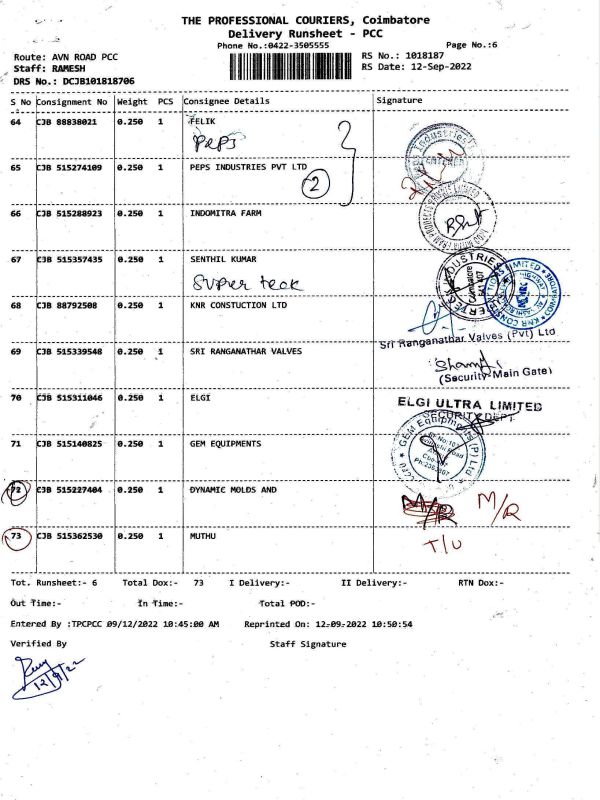 THE PROFESSIONAL COURIERS, Coimbatore
Delivery Runsheet - PCC
Phone No.:0422-3505555
Page No.:6
Route: AVN ROAD PCC
RS No.: 1018187
Staff: RAMESH
RS Date: 12-Sep-2022
DRS No.: DCJB101818706
S No Consignment No Weight PCS Consignee Details Signature
64 CJB 88838021 0.250 1 FELIK
PePS
65 CJB 515274109 0.250 1 PEPS INDUSTRIES PVT LTD
2
66 CJB 515288923 0.250 1 INDOMITRA FARM
67 CJB 515357435 0.250 1 SENTHIL KUMAR
Super teck
68 CJB 88792508 0.250 1 KNR CONSTUCTION LTD
Sri Ranganathar Valves (Pvt) Ltd
69 CJB 515339548 0.250 1 SRI RANGANATHAR VALVES
(Security Main Gate)
70 CJB 515311046 0.250 1 ELGI
ELGI ULTRA LIMITED
SECURITY DEPT
71 CJB 515140825 0.250 1 GEM EQUIPMENTS
GEM Equipments (P) Ltd
72 CJB 515227404 0.250 1 DYNAMIC MOLDS AND
M/R M/R
73 CJB 515362530 0.250 1 MUTHU
T/U
Tot. Runsheet:- 6 Total Dox:- 73 I Delivery:- II Delivery:- RTN Dox:-
Out Time:- In Time:- Total POD:-
Entered By :TPCPCC 09/12/2022 10:45:00 AM Reprinted On: 12-09-2022 10:50:54
Verified By Staff Signature
12/9/22